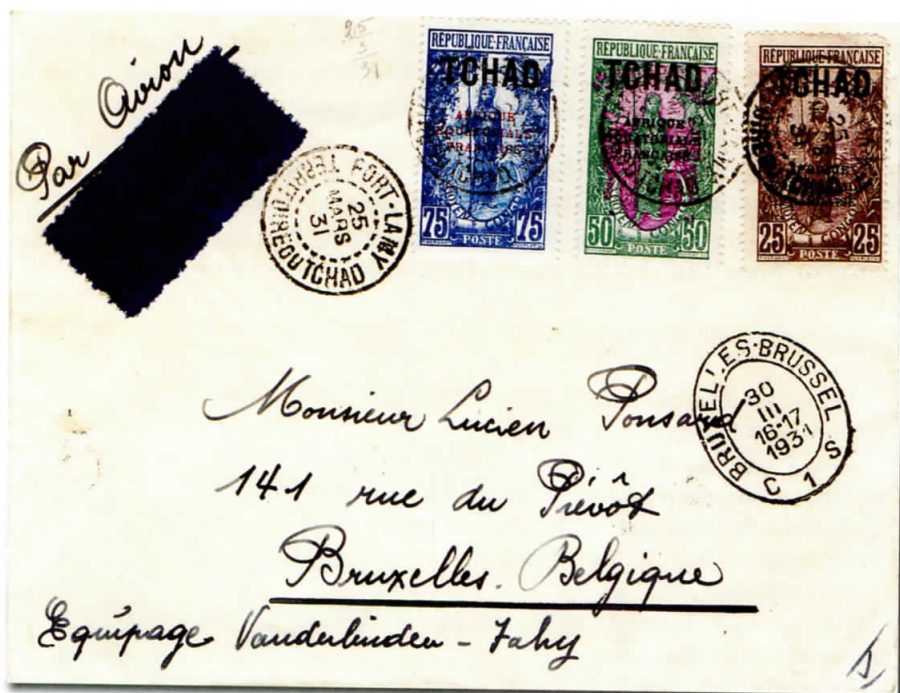 Par Avion
25
3
31
RÉPUBLIQUE·FRANÇAISE
TCHAD
AFRIQUE
ÉQUATORIALE
FRANÇAISE
MOYEN CONGO
75 75
POSTE
RÉPUBLIQUE·FRANÇAISE
TCHAD
AFRIQUE
ÉQUATORIALE
FRANÇAISE
MOYEN CONGO
50 50
POSTE
RÉPUBLIQUE·FRANÇAISE
TCHAD
MOYEN CONGO
25 25
POSTE
FORT-LAMY
25
MARS
31
TERRITOIRE DU TCHAD
BRUXELLES·BRUSSEL
30
III
16-17
1931
C 1 S
Monsieur Lucien Ponsard
141 rue du Piévôt
Bruxelles. Belgique
Equipage Vanderlinden - Fahy